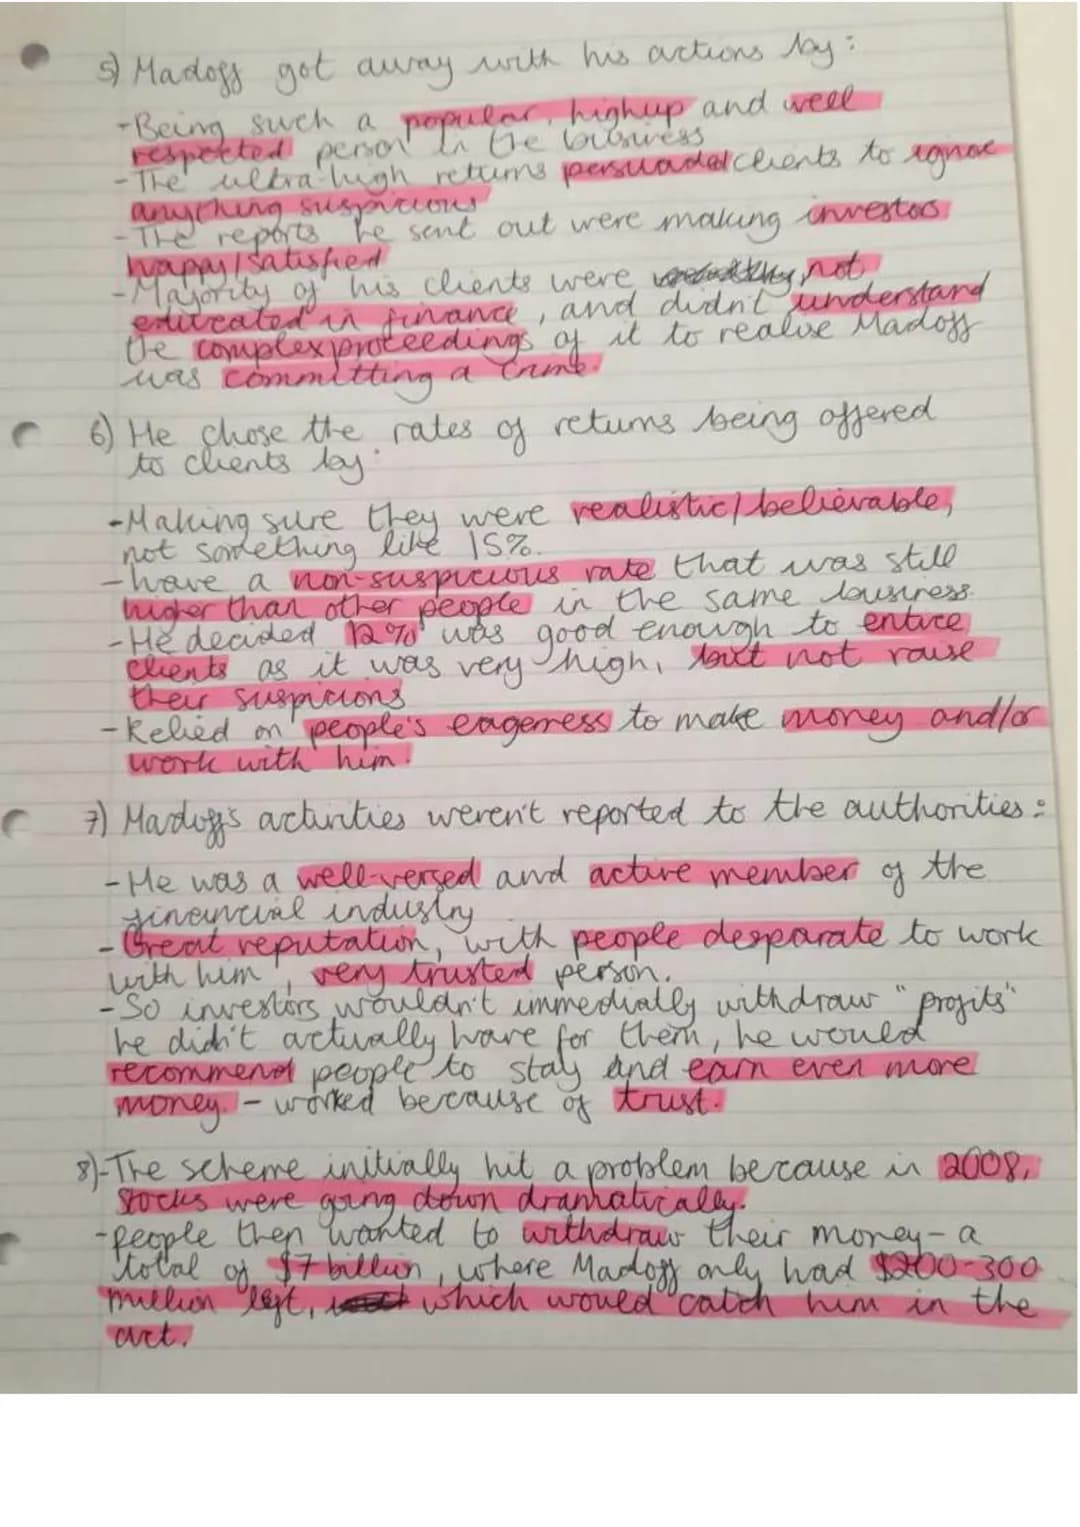 5) Madoff got away with his actions by:
-Being such a popular, highup and well
respected person in the business
-The ultra-high returns persuaded clients to ignore
anything suspicious
-The reports he sent out were making investors
happy/satisfied
-Majority of his clients were not
educated in finance, and didn't understand
the complex proceedings of it to realise Madoff
was committing a crime.
6) He chose the rates of returns being offered
to clients by:
-Making sure they were realistic/believable,
not something like 15%.
-have a non-suspicious rate that was still
higher than other people in the same business.
-He decided 12% was good enough to entice
clients as it was very high, but not raise
their suspicions
-Relied on people's eagerness to make money and/or
work with him.
7) Madoff's activities weren't reported to the authorities:
-He was a well-versed and active member of the
financial industry
-Great reputation, with people desparate to work
with him, very trusted person.
-So investors wouldn't immedially withdraw "profits"
he didn't actually have for them, he would
recommend people to stay and earn even more
money. - worked because of trust.
8)-The scheme initially hit a problem because in 2008,
stocks were going down dramatically.
-people then wanted to withdraw their money- a
total of $7 billion, where Madoff only had $200-300
million left, which would catch him in the
act.